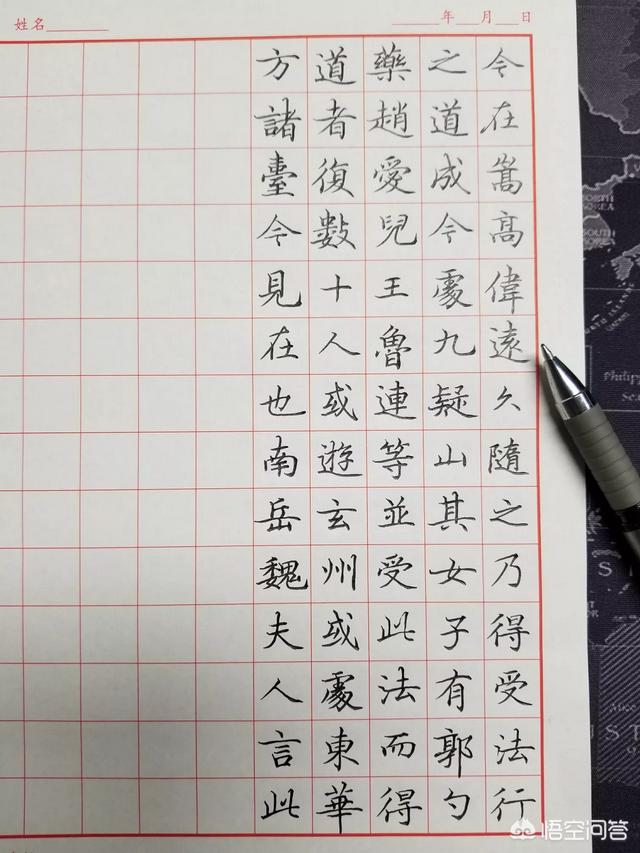 姓名 年 月 日
今在嵩高偉遠久隨之乃得受法行
之道成今處九疑山其女子有郭勺
藥趙愛兒王魯連等並受此法而得
道者復數十人或遊玄州或處東華
方諸臺今見在也南岳魏夫人言此
悟空问答